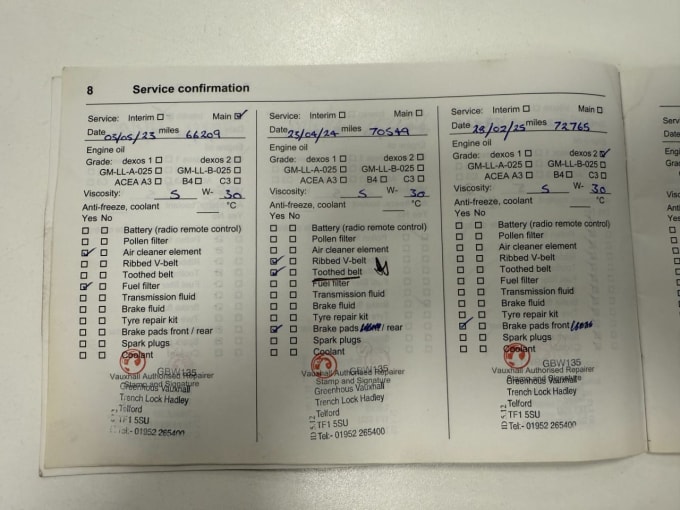 8 Service confirmation
Service: Interim ☐ Main ☑
Date 03/05/23 miles 66209
Engine oil
Grade: dexos 1 ☐ dexos 2 ☐
GM-LL-A-025 ☐ GM-LL-B-025 ☐
ACEA A3 ☐ B4 ☐ C3 ☐
Viscosity: 5 W- 30
Anti-freeze, coolant °C
Yes No
☐ ☐ Battery (radio remote control)
☐ ☐ Pollen filter
☑ ☐ Air cleaner element
☐ ☐ Ribbed V-belt
☐ ☐ Toothed belt
☑ ☐ Fuel filter
☐ ☐ Transmission fluid
☐ ☐ Brake fluid
☐ ☐ Tyre repair kit
☐ ☐ Brake pads front / rear
☐ ☐ Spark plugs
☐ ☐ Coolant
GBW135
Vauxhall Authorised Repairer
Stamp and Signature
Greenhous Vauxhall
Trench Lock Hadley
Telford
TF1 5SU
Tel:- 01952 265400
Service: Interim ☐ Main ☐
Date 23/04/24 miles 70549
Engine oil
Grade: dexos 1 ☐ dexos 2 ☐
GM-LL-A-025 ☐ GM-LL-B-025 ☐
ACEA A3 ☐ B4 ☐ C3 ☐
Viscosity: 5 W- 30
Anti-freeze, coolant °C
Yes No
☐ ☐ Battery (radio remote control)
☐ ☐ Pollen filter
☐ ☐ Air cleaner element
☑ ☐ Ribbed V-belt
☑ ☐ Toothed belt
☐ ☐ Fuel filter
☐ ☐ Transmission fluid
☐ ☐ Brake fluid
☐ ☐ Tyre repair kit
☑ ☐ Brake pads / rear
☐ ☐ Spark plugs
☐ ☐ Coolant
GBW135
Vauxhall Authorised Repairer
Stamp and Signature
Greenhous Vauxhall
Trench Lock Hadley
Telford
TF1 5SU
Tel:- 01952 265400
Service: Interim ☐ Main ☐
Date 28/02/25 miles 72765
Engine oil
Grade: dexos 1 ☐ dexos 2 ☑
GM-LL-A-025 ☐ GM-LL-B-025 ☐
ACEA A3 ☐ B4 ☐ C3 ☐
Viscosity: 5 W- 30
Anti-freeze, coolant °C
Yes No
☐ ☐ Battery (radio remote control)
☐ ☐ Pollen filter
☐ ☐ Air cleaner element
☐ ☐ Ribbed V-belt
☐ ☐ Toothed belt
☐ ☐ Fuel filter
☐ ☐ Transmission fluid
☐ ☐ Brake fluid
☐ ☐ Tyre repair kit
☑ ☐ Brake pads front /
☐ ☐ Spark plugs
☐ ☐ Coolant
GBW135
Vauxhall Authorised Repairer
Stamp and Signature
Greenhous Vauxhall
Trench Lock Hadley
Telford
TF1 5SU
Tel:- 01952 265400